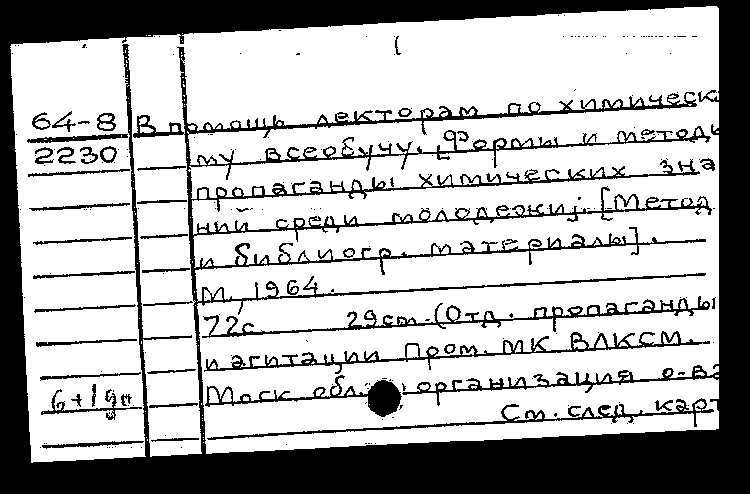 64-8 В помощь лекторам по химическ
2230 му всеобучу. [Формы и методы
пропаганды химических зна
ний среди молодежи]. [Метод
и библиогр. материалы].
М., 1964.
72с. 29см. (Отд. пропаганды
и агитации Пром. МК ВЛКСМ.
Моск. обл. организация о-ва
См. след. карт